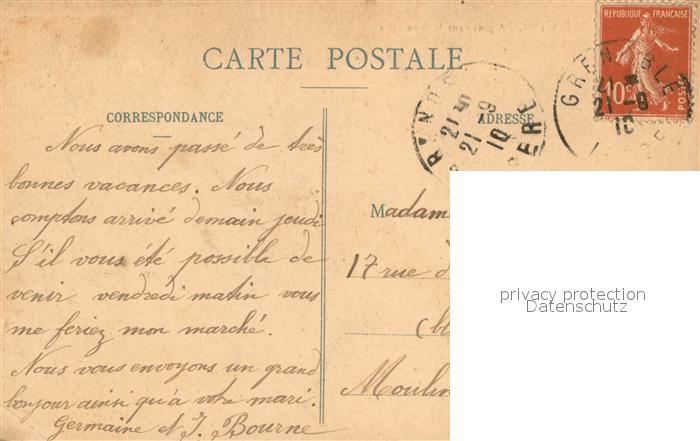 CARTE POSTALE
CORRESPONDANCE
ADRESSE
REPUBLIQUE FRANÇAISE
10c
POSTES
GRENOBLE
21 - 9
10
21 - 9
10
Nous avons passé de très
bonnes vacances. Nous
comptons arrivé demain jeudi
S'il vous été possible de
venir vendredi matin vous
me feriez mon marché.
Nous vous envoyons un grand
bonjour ainsi qu'à votre mari.
Germaine et J. Bourne
Madam
17 rue d
Moulin
privacy protection
Datenschutz